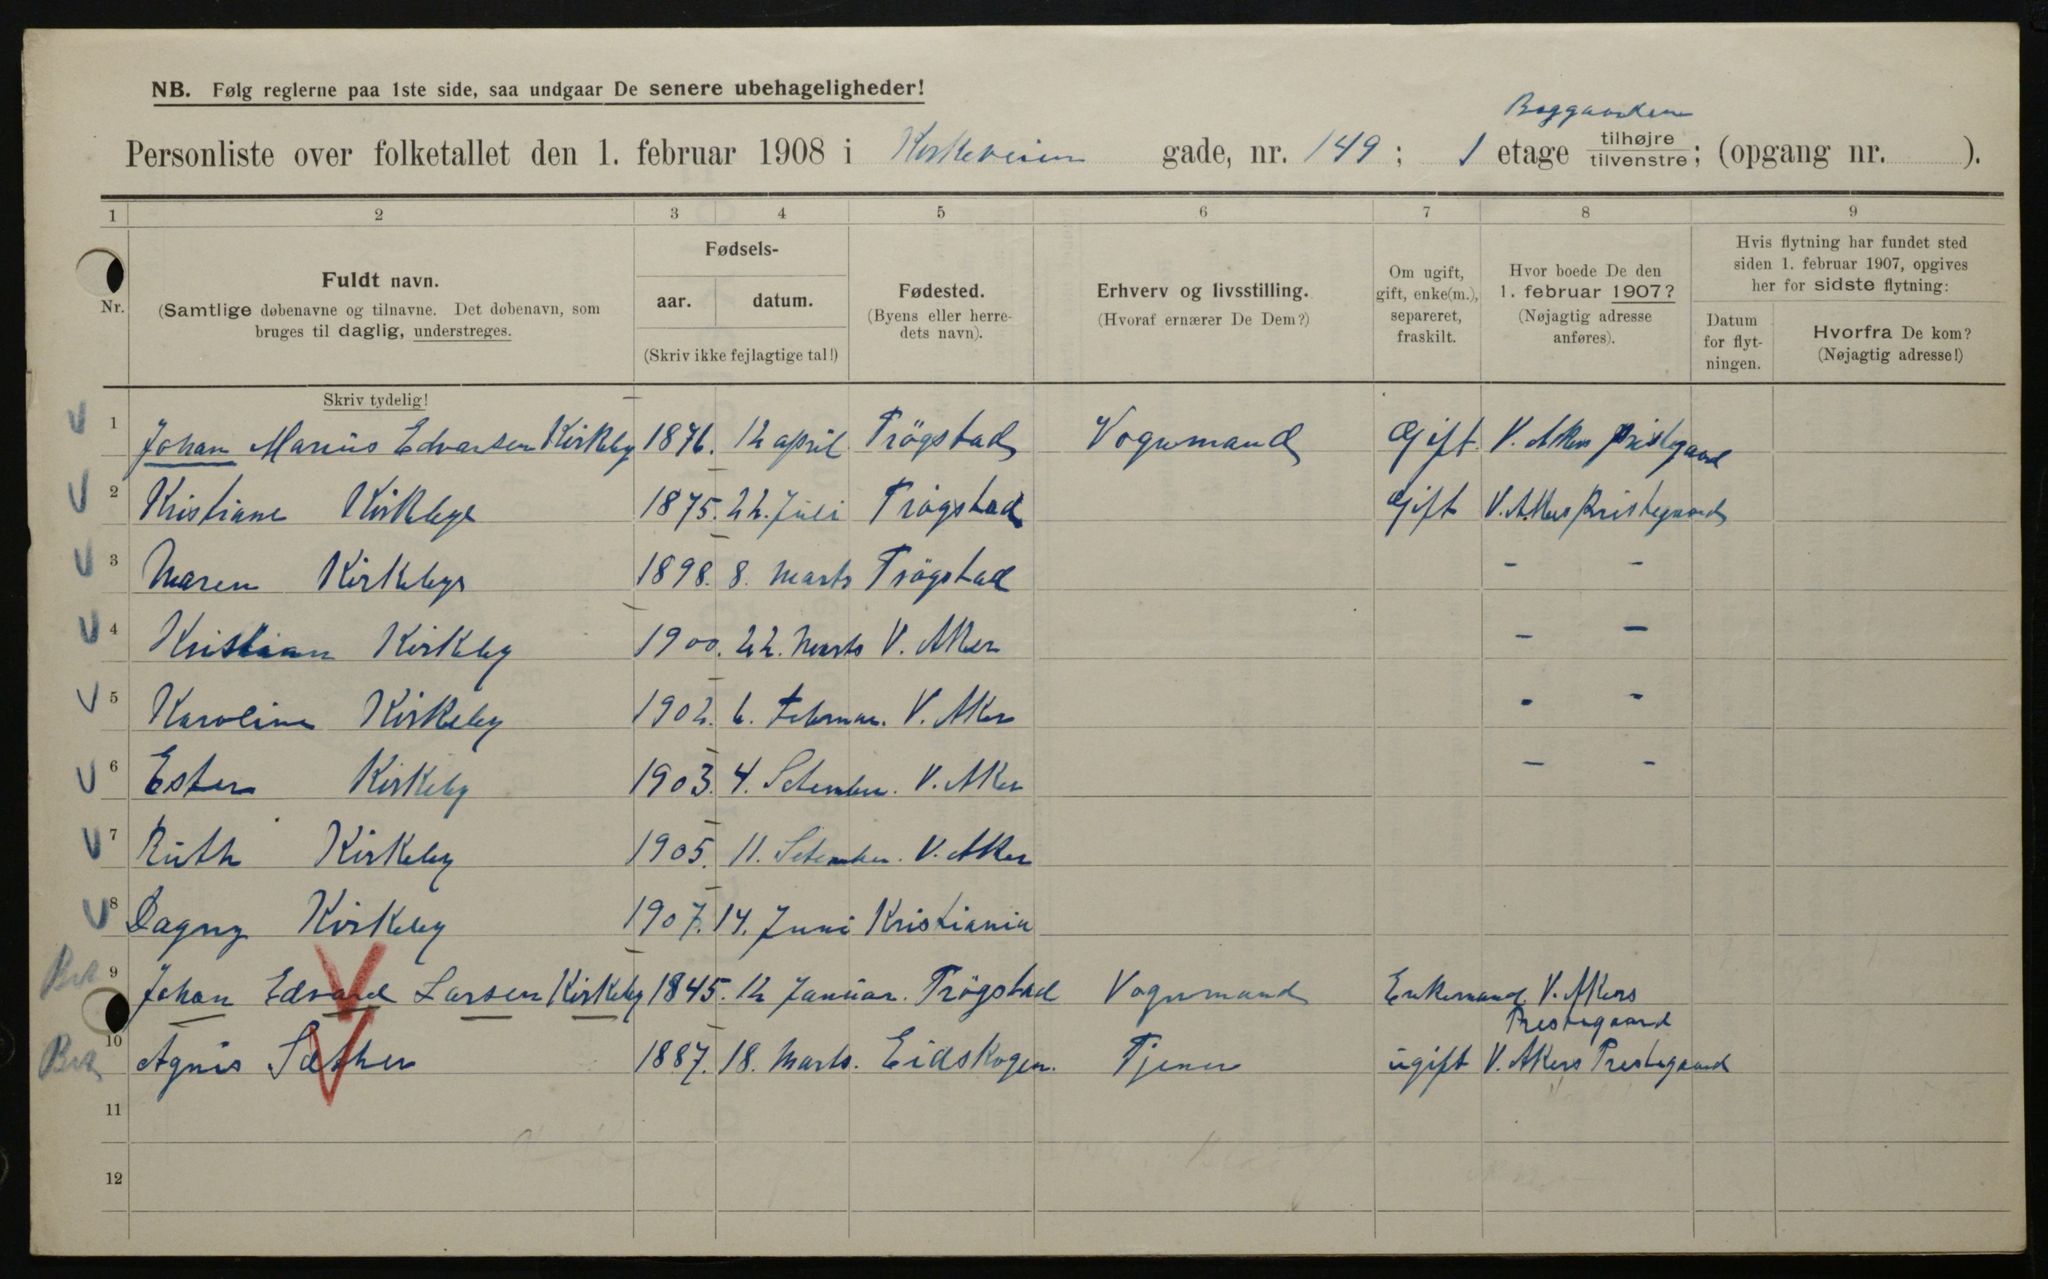 NB. Følg reglerne paa 1ste side, saa undgaar De senere ubehageligheder!
Baggaarden
Personliste over folketallet den 1. februar 1908 i Kirkeveien gade, nr. 149; 1 etage tilhøjre tilvenstre; (opgang nr. ).
1 2 3 4 5 6 7 8 9
Nr.
Fuldt navn.
(Samtlige døbenavne og tilnavne. Det døbenavn, som
bruges til daglig, understreges.
Fødsels-
aar. datum.
(Skriv ikke fejlagtige tal!)
Fødested.
(Byens eller herre-
dets navn).
Erhverv og livsstilling.
(Hvoraf ernærer De Dem?)
Om ugift,
gift, enke(m.),
separeret,
fraskilt.
Hvor boede De den
1. februar 1907?
(Nøjagtig adresse
anføres).
Hvis flytning har fundet sted
siden 1. februar 1907, opgives
her for sidste flytning:
Datum
for flyt-
ningen.
Hvorfra De kom?
(Nøjagtig adresse!)
Skriv tydelig!
1 Johan Marius Edvarsen Kirkeby 1876. 12 april Trögstad Vognmand Gift V. Akers Pristegaard
2 Kristiane Kirkeby 1875. 22. Juli Trögstad Gift V. Akers Pristegaard
3 Maren Kirkeby 1898. 8. Marts Trögstad - -
4 Kristian Kirkeby 1900. 22. Marts V. Aker - -
5 Karoline Kirkeby 1902. 6. Februar. V. Aker - -
6 Ester Kirkeby 1903. 4. Setember. V. Aker - -
7 Ruth Kirkeby 1905. 11. Setember. V. Aker
8 Dagny Kirkeby 1907. 14. Juni Kristiania
9 Johan Edvard Larsen Kirkeby 1845. 12 Januar. Trögstad Vognmand Enkemand V. Akers
Prestegaard
10 Agnis Sæther 1887. 18. Marts. Eidskogen. Tjener ugift V. Akers Prestegaard
11
12